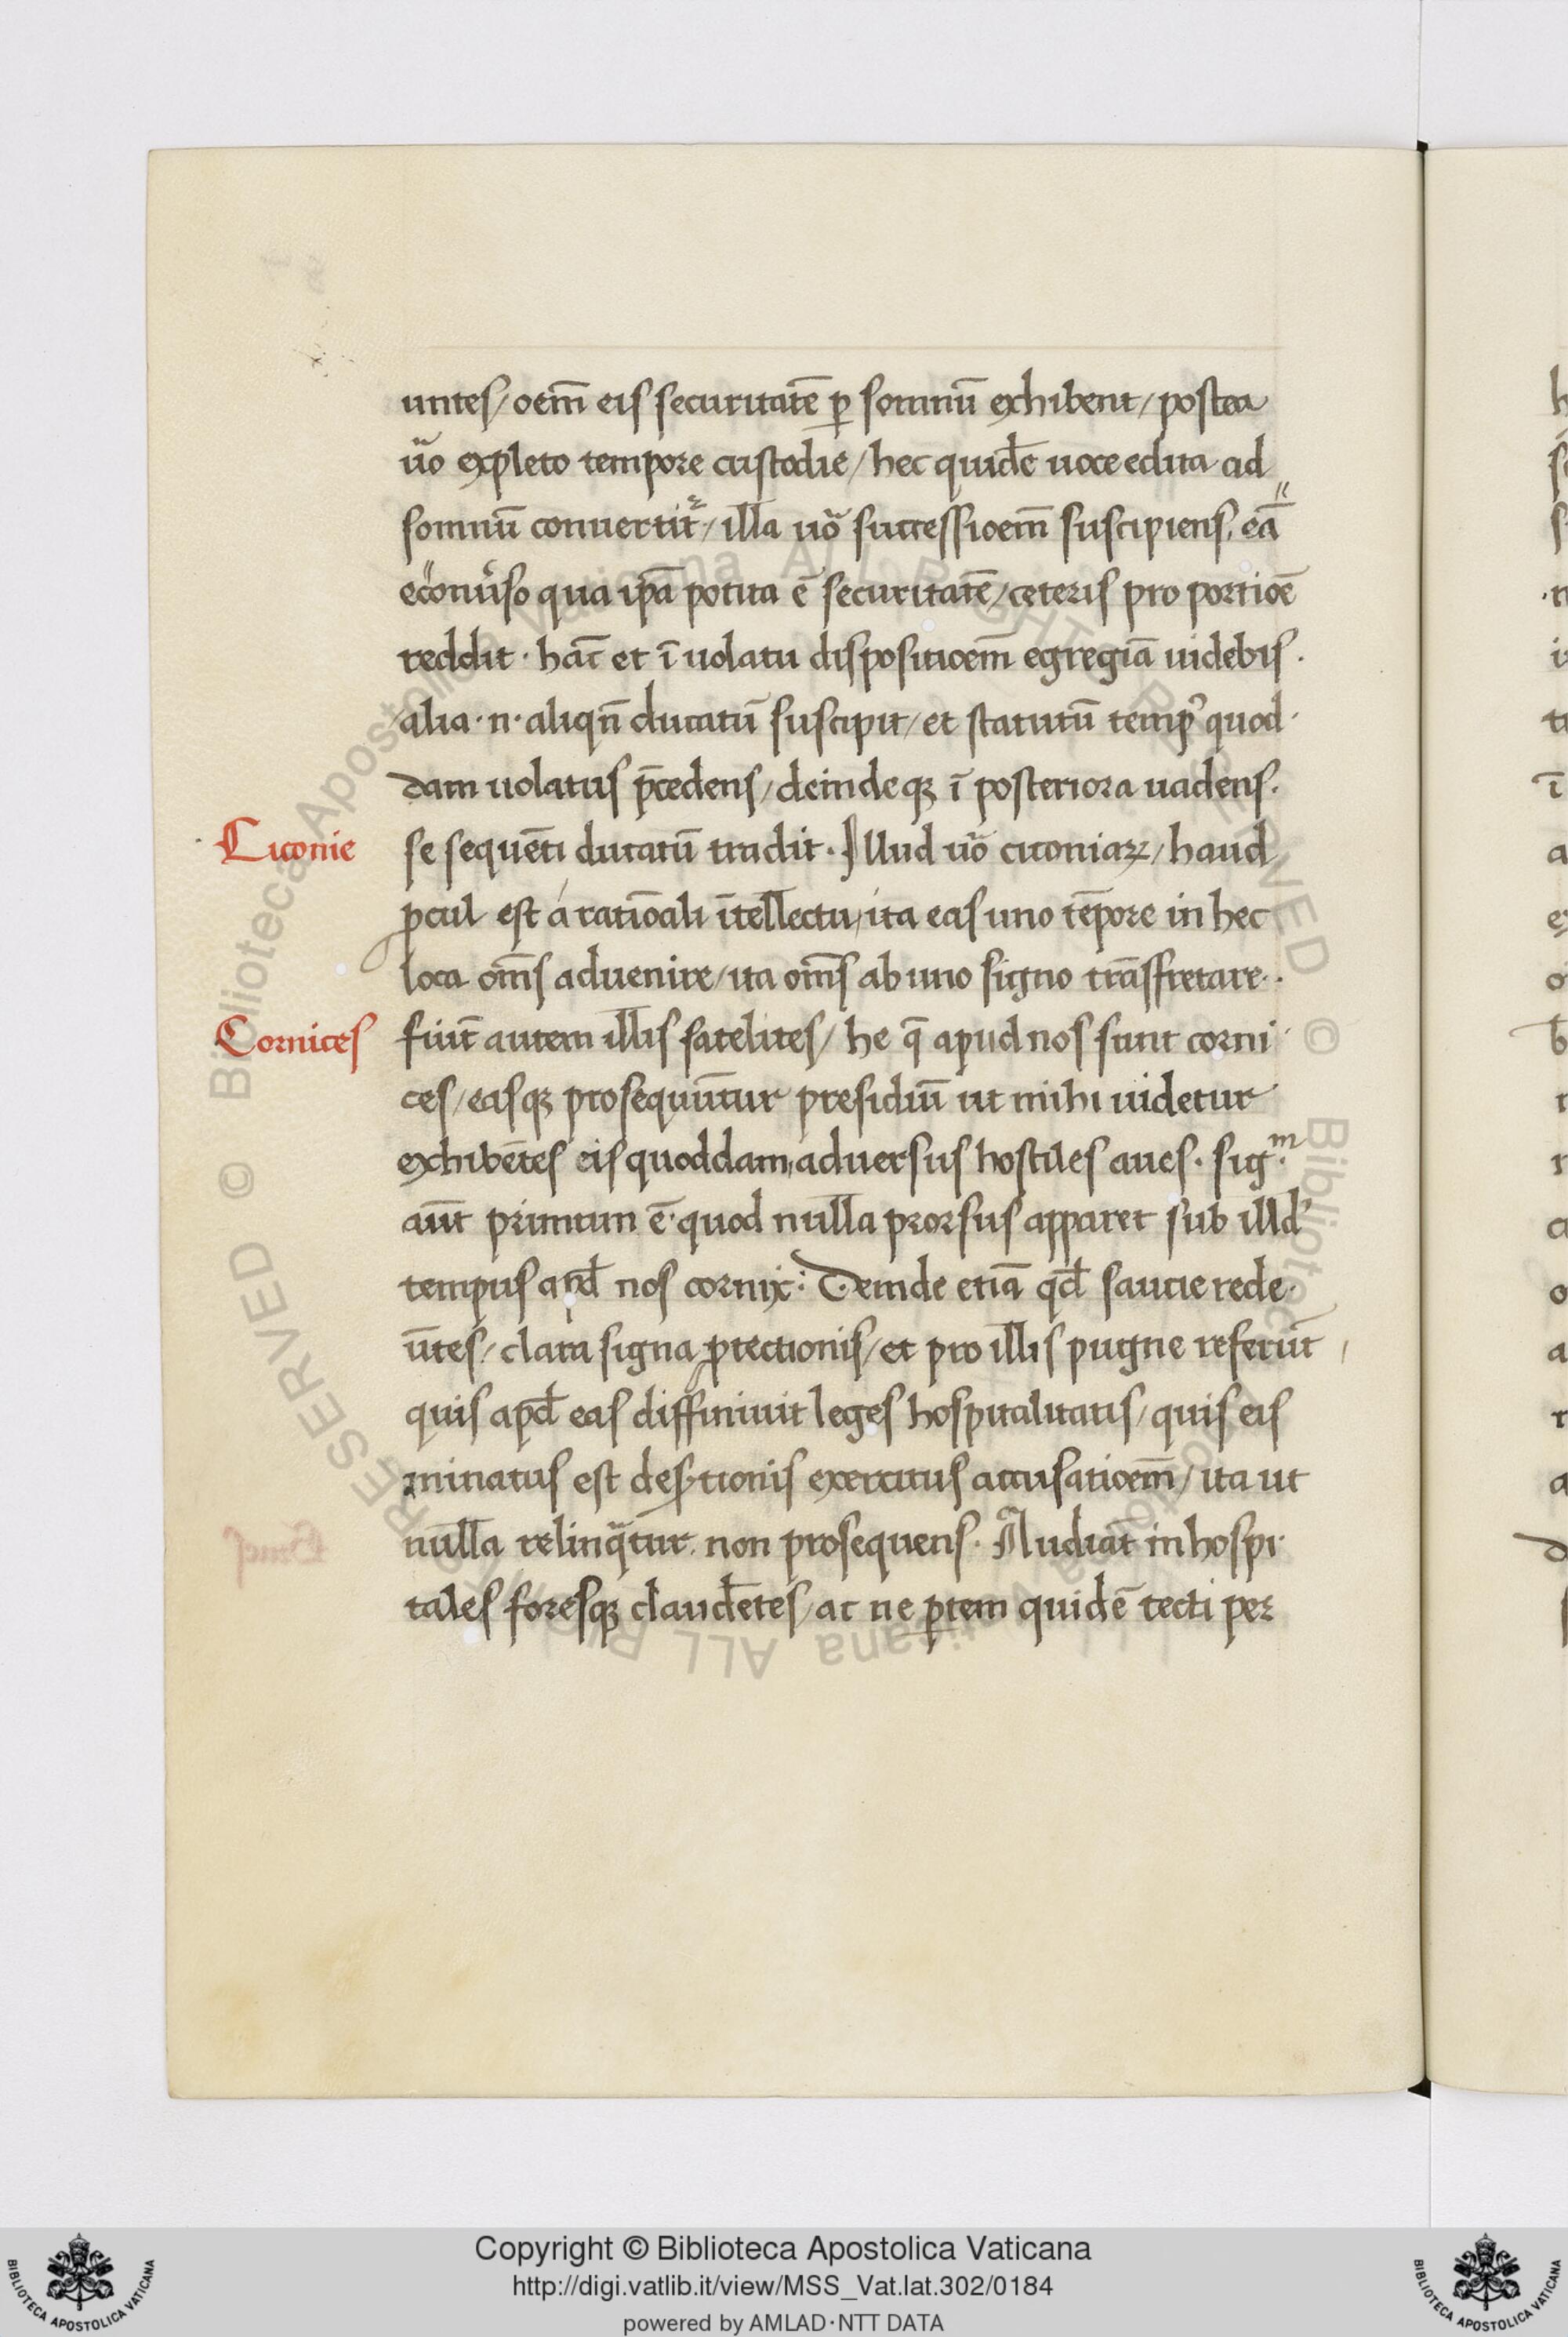 untes/ oem̄ eis securitatē ꝑ somnū exhibent/ postea
u̾o expleto tempore custodie/ hec quidē uoce edita ad
somnū conuertit᷑/ illa uo̾ successioem̄ suscipiens, eā
econu̾so qua ip̄a potita ē securitatē/ ceteris pro portioē
reddit · hāc et ī uolatu dispositioem̄ egregiā uidebis ·
alia · n · aliqn̄ ducatū suscipit/ et statutū temp᷒ quod ·
dam uolatus p̄cedens/ deindeqꝫ ī posteriora uadens ·
Ciconie
se sequēti ducatū tradit · Illud uo̾ ciconiaꝝ/ haud
ꝓcul est á ratiōali ītellectu, ita eas uno tēpore in hec
loca om̄s aduenire/ ita om̄s ab uno signo trāsfretare ·
Cornices
fiūt autem illis satelites/ he q̄ apud nos sunt corni
ces/ easqꝫ prosequūtur presidiū ut mihi uidetur
exhibētes eis quoddam, aduersus hostiles aues · sig.ᵐ
aūt primum ē · quod nulla prorsus apparet sub illd᷒
tempus apd̄ nos cornix : Deinde etiā qd̄ saucie rede ·
ūtes/ clara signa ꝓtectionis/ et pro illis pugne referūt
quis apd̄ eas diffiniuit leges hospitalitatis/ quis eis
minatus est des̾tionis exercitus accusatioem̄/ ita ut
nulla relinqᷓtur non prosequens · Audiāt inhospi
tales foresqꝫ claudētes/ ac ne ꝑtem quidē tecti per
Copyright © Biblioteca Apostolica Vaticana
http://digi.vatlib.it/view/MSS_Vat.lat.302/0184
powered by AMLAD·NTT DATA